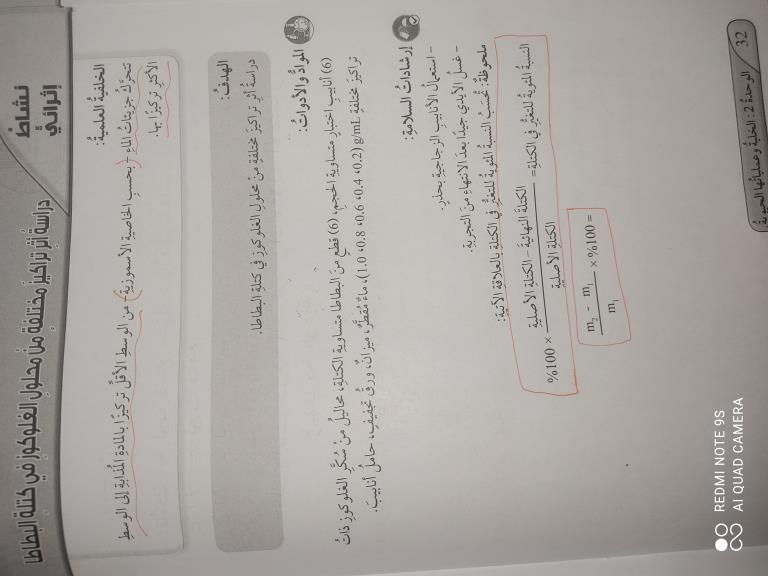 نشاطٌ
إثرائيٌّ
دراسةُ أثرِ تراكيزَ مختلفةٍ منْ محلولِ الغلوكوزِ في كتلةِ البطاطا
الخلفيةُ العلميةُ:
تتحرَّكُ جزيئاتُ الماءِ -بحسبِ الخاصيةِ الأسموزيةِ- من الوسطِ الأقلِّ تركيزًا بالمادةِ المُذابةِ إلى الوسطِ
الأكثرِ تركيزًا بها.
الهدفُ:
دراسةُ أثرِ تراكيزَ مختلفةٍ منْ محلولِ الغلوكوزِ في كتلةِ البطاطا.
الموادُّ والأدواتُ:
(6) أنابيبِ اختبارٍ متساويةِ الحجمِ، (6) قطعٍ منَ البطاطا متساويةِ الكتلةِ، محاليلُ منْ سُكَّرِ الغلوكوزِ ذاتُ
تراكيزَ مختلفةٍ g/mL (0.2، 0.4، 0.6، 0.8، 1.0)، ماءٌ مُقطَّرٌ، ميزانٌ، ورقُ تجفيفٍ، حاملُ أنابيبَ.
إرشاداتُ السلامةِ:
- استعمالُ الأنابيبِ الزجاجيةِ بحذرٍ.
- غسلُ الأيدي جيدًا بعدَ الانتهاءِ منَ التجربةِ.
ملحوظةٌ: تُحسَبُ النسبةُ المئويةُ للتغيُّرِ في الكتلةِ بالعلاقةِ الآتيةِ:
النسبةُ المئويةُ للتغيُّرِ في الكتلةِ = الكتلةُ النهائيةُ - الكتلةُ الأصليةُ
الكتلةُ الأصليةُ
× 100%
= m₂ - m₁
m₁
× 100%
32
الوحدةُ 2: الخليةُ وعملياتُها الحيويةُ.
REDMI NOTE 9S
AI QUAD CAMERA